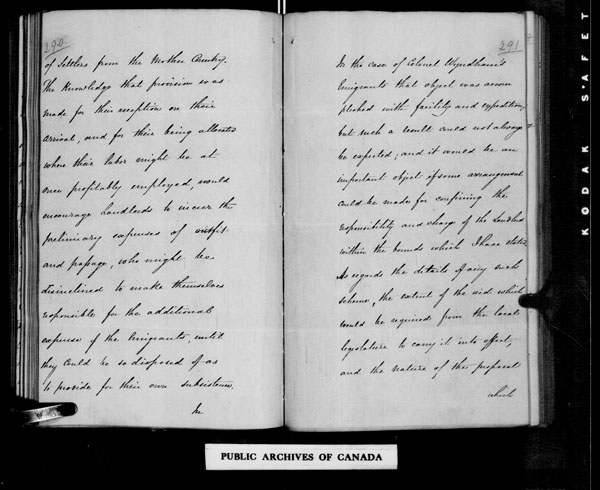 290.
of Settlers from the Mother Country.
The knowledge that provision was
made for their reception on their
arrival, and for their being allocated
where their labor might be at
once profitably employed, would
encourage landlords to incur the
preliminary expenses of outfit
and passage, who might be
disinclined to make themselves
responsible for the additional
expense of the Emigrants, until
they could be so disposed of as
to provide for their own subsistence.
In
291
In the case of Colonel Wyndham's
Emigrants that object was accom
plished with facility and expedition,
but such a result could not always
be expected; and it would be an
important object if some arrangement
could be made for confining the
responsibility and charge of the Landlord
within the bounds which I have stated.
As regards the details of any such
scheme, the extent of the aid which
would be required from the local
legislature to carry it into effect,
and the nature of the proposal
which
PUBLIC ARCHIVES OF CANADA
KODAK S'AFET